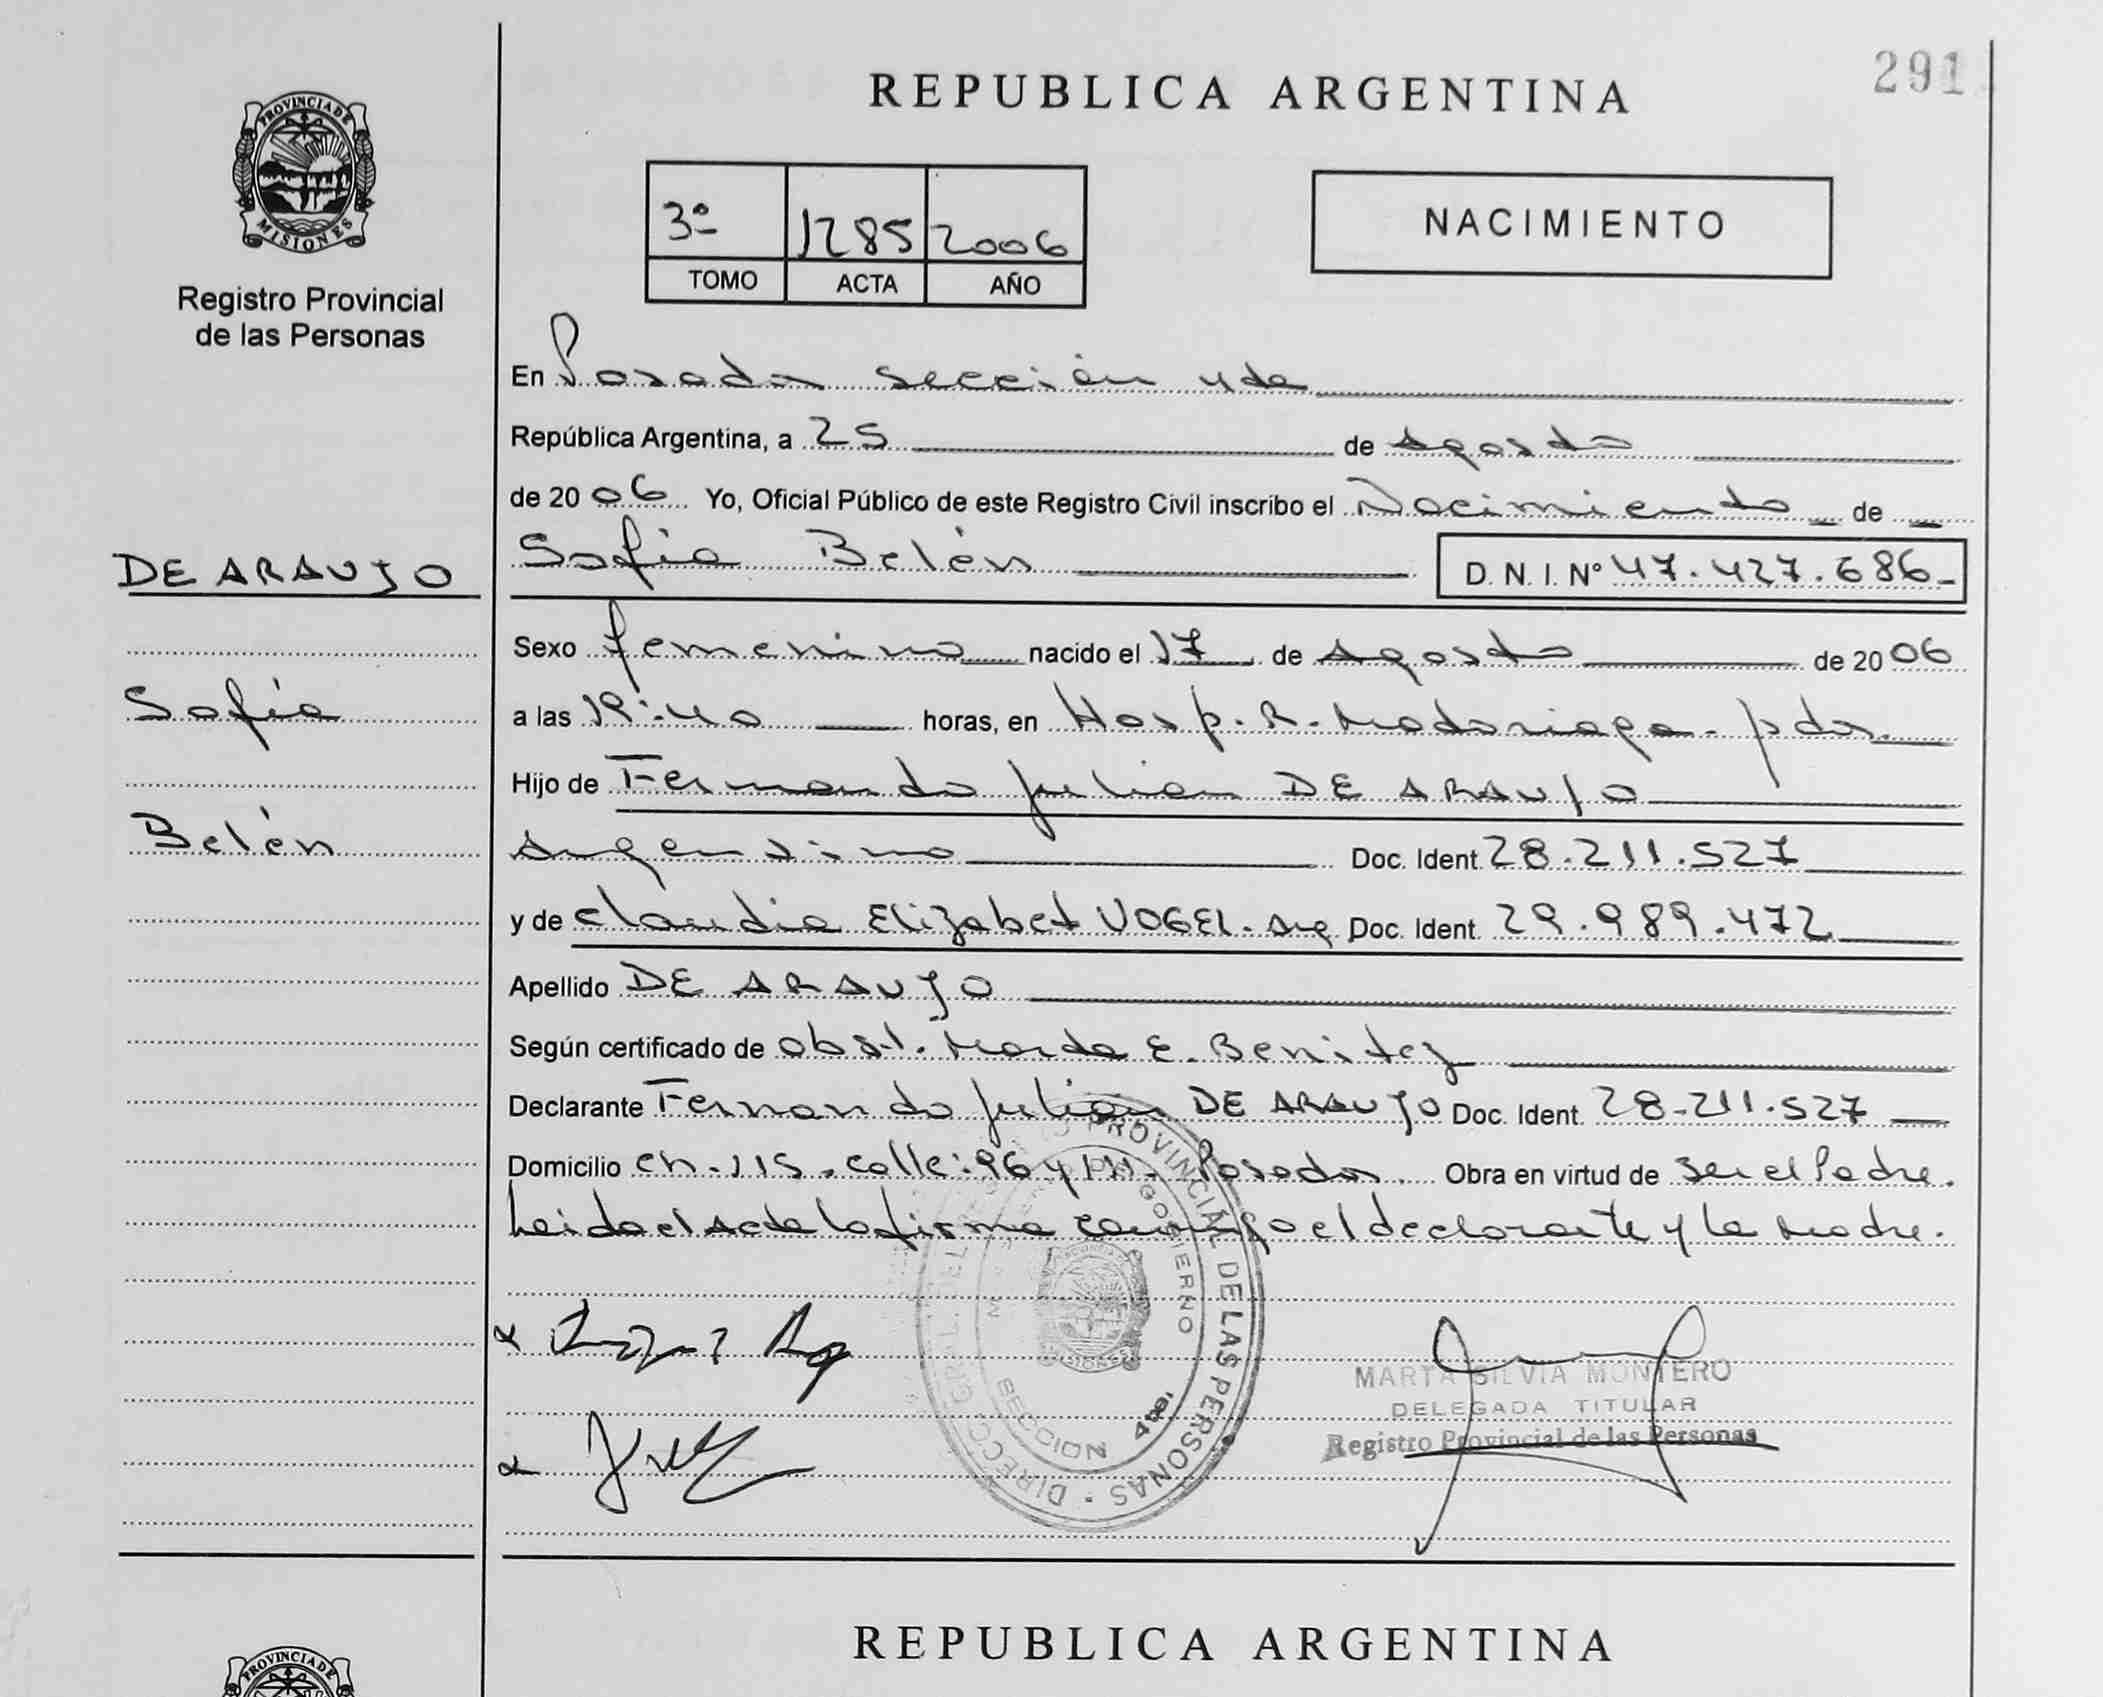 291
REPUBLICA ARGENTINA
PROVINCIA DE
MISIONES
Registro Provincial
de las Personas
3º 1285 2006
TOMO ACTA AÑO
NACIMIENTO
En Posadas sección 4ta
República Argentina, a 25 de Agosto
de 2006 Yo, Oficial Público de este Registro Civil inscribo el Nacimiento de
DE ARAUJO
Sofía
Belén
Sofía Belén D. N. I. Nº 47.427.686
Sexo femenino nacido el 17 de Agosto de 2006
a las 19:40 horas, en Hosp. R. Madariaga - pdas.
Hijo de Fernando Julian DE ARAUJO
Argentino Doc. Ident. 28.211.527
y de Claudia Elizabet VOGEL. Arg Doc. Ident. 29.989.472
Apellido DE ARAUJO
Según certificado de obst. Marta E. Benitez
Declarante Fernando Julian DE ARAUJO Doc. Ident. 28.211.527
Domicilio ch. 115. calle: 96 y Posadas. Obra en virtud de ser el Padre.
Leida el Acta la firma conmigo el declarante y la Madre.
DIRECC. GRAL. DEL REGISTRO PROVINCIAL DE LAS PERSONAS
DE GOBIERNO
MISIONES
SECCION 4ta.
MARTA SILVIA MONTERO
DELEGADA TITULAR
Registro Provincial de las Personas
REPUBLICA ARGENTINA
PROVINCIA DE